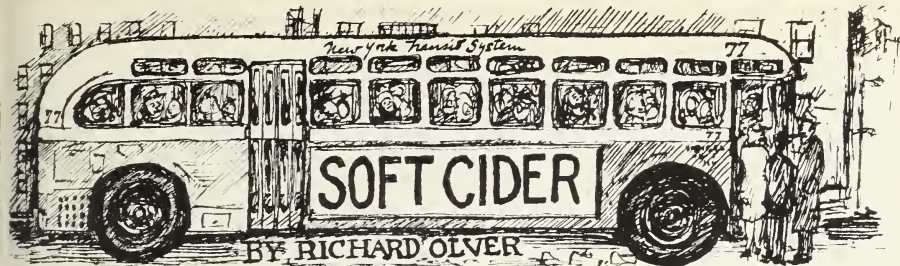 New York Transit System 77
77
77
SOFT CIDER
BY RICHARD OLVER